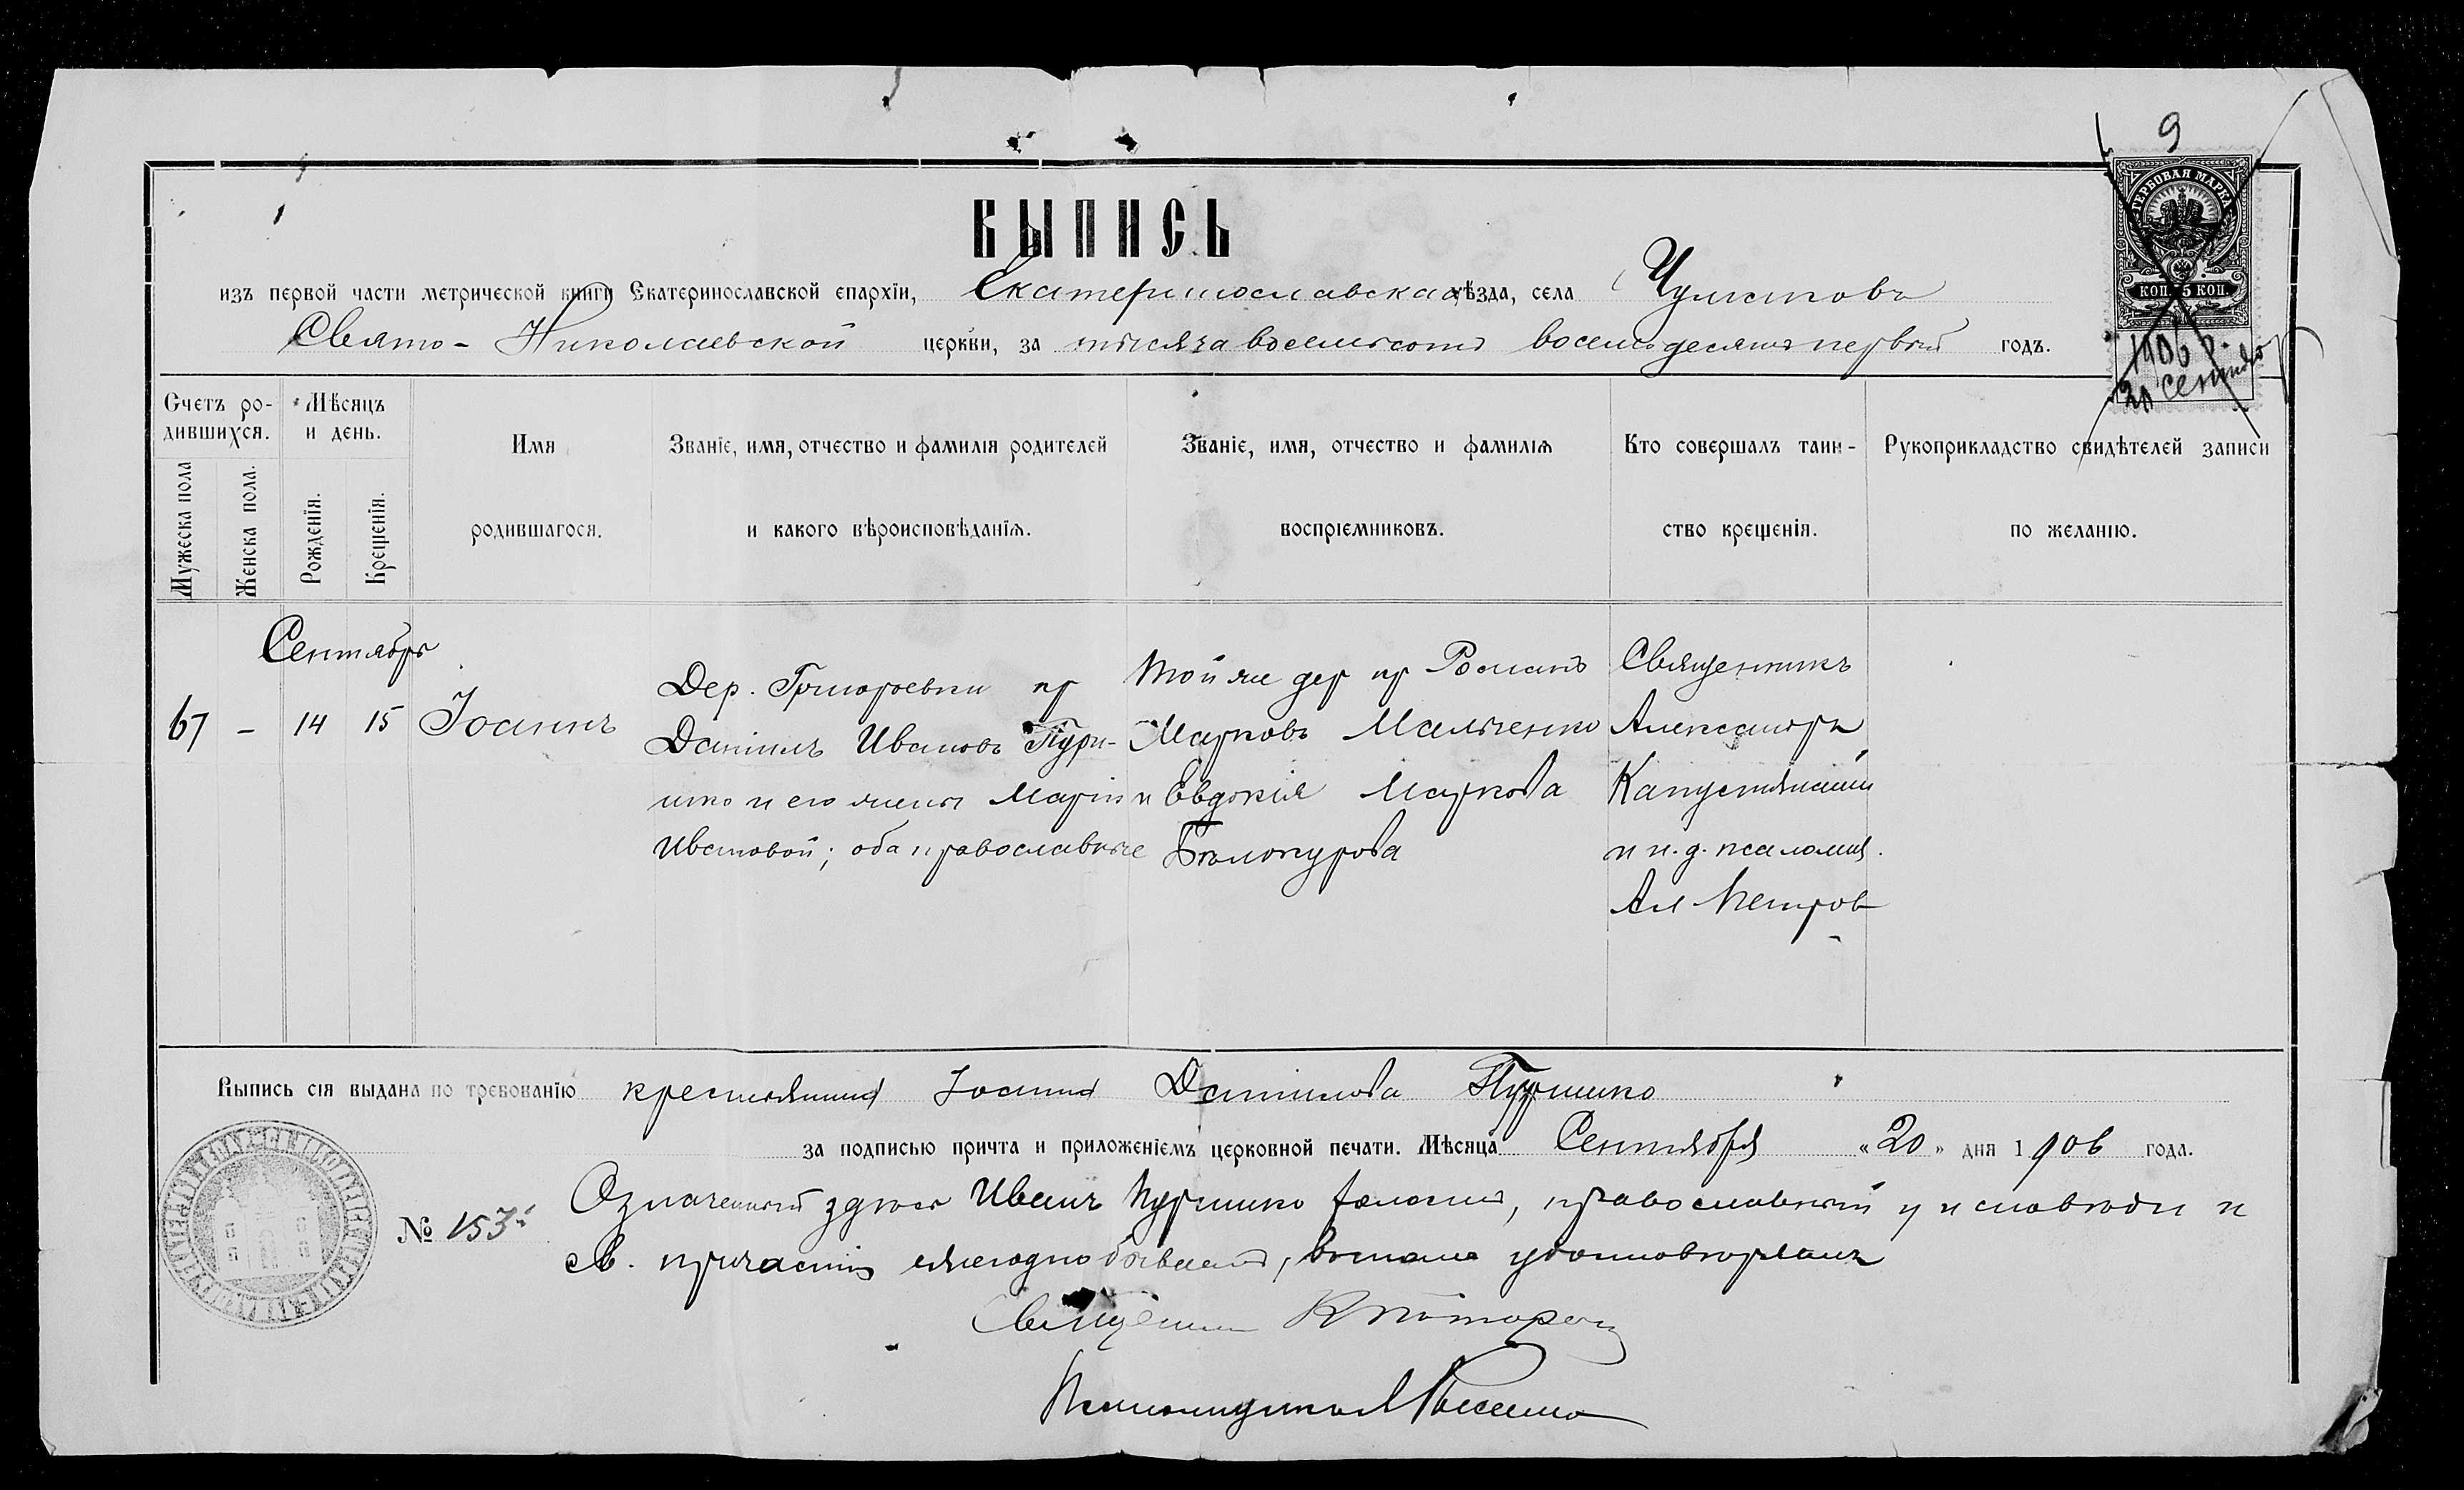 9
ГЕРБОВАЯ МАРКА
КОП. 5 КОП.
1906 г.
20 сентяб
ВЫПИСЬ
изъ первой части метрической книги Екатеринославской епархіи, Екатеринославскаго уѣзда, села Чумаковъ
Свято-Николаевской церкви, за тысяча восемьсотъ восемьдесятъ первый годъ.
Счетъ ро-
дившихся.
Мѣсяцъ
и день.
Мужеска пола
Женска пола.
Рожденія.
Крещенія.
Имя
родившагося.
Званіе, имя, отчество и фамилія родителей
и какого вѣроисповѣданія.
Званіе, имя, отчество и фамилія
воспріемниковъ.
Кто совершалъ таин-
ство крещенія.
Рукоприкладство свидѣтелей записи
по желанію.
Сентябрь
67 - 14 15 Іоаннъ
Дер. Григорьевки кр
Даніилъ Ивановъ Пурш-
шко и его жена Марія
Иванова; оба православные
Той же дер кр Романъ
Марковъ Мальченко
и Евдокія Маркова
Бѣлокурова
Священникъ
Александръ
Капустянскій
и и. д. псаломщ.
Ал Петровъ
Выпись сія выдана по требованію крестьянина Іоанна Даніилова Пуршико
за подписью причта и приложеніемъ церковной печати. Мѣсяца Сентября «20» дня 1906 года.
№ 153
Означенный здѣсь Иванъ православный, у исповѣди и
св. причастія ежегодно бываетъ, въ чемъ удостовѣряемъ
Священникъ
Псаломщикъ